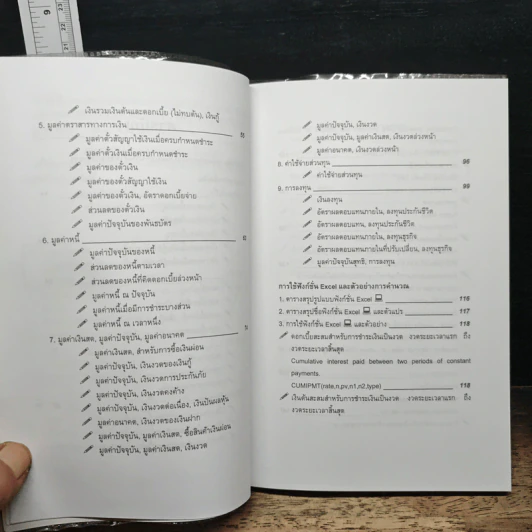 เงินรวมเงินต้นและดอกเบี้ย (ไม่ทบต้น), เงินกู้
5. มูลค่าตราสารทางการเงิน
มูลค่าตั๋วสัญญาใช้เงินเมื่อครบกำหนดชำระ
มูลค่าตั๋วเงินเมื่อครบกำหนดชำระ
มูลค่าของตั๋วเงิน
มูลค่าของตั๋วสัญญาใช้เงิน
มูลค่าของตั๋วเงิน, อัตราดอกเบี้ยจ่าย
ส่วนลดของตั๋วเงิน
มูลค่าปัจจุบันของพันธบัตร
6. มูลค่าหนี้
มูลค่าปัจจุบันของหนี้
ส่วนลดของหนี้ตามเวลา
ส่วนลดของหนี้ที่คิดดอกเบี้ยล่วงหน้า
มูลค่าหนี้ ณ ปัจจุบัน
มูลค่าหนี้เมื่อมีการชำระบางส่วน
มูลค่าหนี้ ณ เวลาหนึ่ง
7. มูลค่าเงินสด, มูลค่าปัจจุบัน, มูลค่าอนาคต
มูลค่าเงินสด, สำหรับการซื้อเงินผ่อน
มูลค่าปัจจุบัน, เงินงวดของเงินกู้
มูลค่าปัจจุบัน, เงินงวดการประกันภัย
มูลค่าปัจจุบัน, เงินงวดคงค้าง
มูลค่าปัจจุบัน, เงินงวดต่อเนื่อง, เงินปันผลหุ้น
มูลค่าอนาคต, เงินงวดของเงินฝาก
มูลค่าปัจจุบัน, มูลค่าเงินสด, ซื้อสินค้าเงินผ่อน
มูลค่าปัจจุบัน, มูลค่าเงินสด, เงินงวด
มูลค่าปัจจุบัน, เงินงวด
มูลค่าปัจจุบัน, มูลค่าเงินสด, เงินงวดล่วงหน้า
มูลค่าอนาคต, เงินงวดล่วงหน้า
8. ค่าใช้จ่ายส่วนทุน 96
ค่าใช้จ่ายส่วนทุน
9. การลงทุน 99
เงินลงทุน
อัตราผลตอบแทนภายใน, ลงทุนประกันชีวิต
อัตราผลตอบแทน, ลงทุนประกันชีวิต
อัตราผลตอบแทนภายใน, ลงทุนธุรกิจ
อัตราผลตอบแทนภายในที่ปรับเปลี่ยน, ลงทุนธุรกิจ
มูลค่าปัจจุบันสุทธิ, การลงทุน
การใช้ฟังก์ชั่น Excel และตัวอย่างการคำนวณ
1. ตารางสรุปรูปแบบฟังก์ชั่น Excel 116
2. ตารางสรุปชื่อฟังก์ชั่น Excel และตัวแปร 117
3. การใช้ฟังก์ชั่น Excel และตัวอย่าง 118
ดอกเบี้ยสะสมสำหรับการชำระเงินเป็นงวด งวดระยะเวลาแรก ถึง
งวดระยะเวลาสิ้นสุด
Cumulative interest paid between two periods of constant
payments.
CUMIPMT(rate,n,pv,n1,n2,type) 118
เงินต้นสะสมสำหรับการชำระเงินเป็นงวด งวดระยะเวลาแรก ถึง
งวดระยะเวลาสิ้นสุด